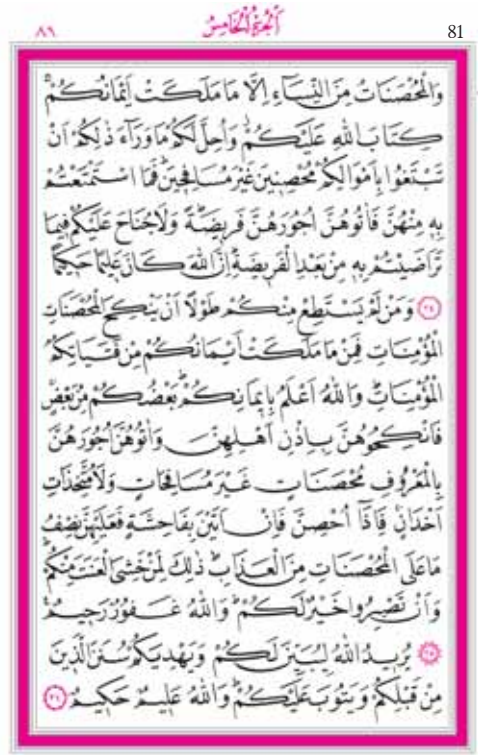 ٨١ اَلْجُزْءُ الْخَامِسُ 81
وَالْمُحْصَنَاتُ مِنَ النِّسَٓاءِ اِلَّا مَا مَلَكَتْ اَيْمَانُكُمْۚ
كِتَابَ اللّٰهِ عَلَيْكُمْۚ وَاُحِلَّ لَكُمْ مَا وَرَٓاءَ ذٰلِكُمْ اَنْ
تَبْتَغُوا بِاَمْوَالِكُمْ مُحْصِنٖينَ غَيْرَ مُسَافِحٖينَۜ فَمَا اسْتَمْتَعْتُمْ
بِهٖ مِنْهُنَّ فَاٰتُوهُنَّ اُجُورَهُنَّ فَرٖيضَةًۜ وَلَا جُنَاحَ عَلَيْكُمْ فٖيمَا
تَرَاضَيْتُمْ بِهٖ مِنْ بَعْدِ الْفَرٖيضَةِۜ اِنَّ اللّٰهَ كَانَ عَلٖيمًا حَكٖيمًا
﴿٢٤﴾ وَمَنْ لَمْ يَسْتَطِعْ مِنْكُمْ طَوْلًا اَنْ يَنْكِحَ الْمُحْصَنَاتِ
الْمُؤْمِنَاتِ فَمِنْ مَا مَلَكَتْ اَيْمَانُكُمْ مِنْ فَتَيَاتِكُمُ
الْمُؤْمِنَاتِۜ وَاللّٰهُ اَعْلَمُ بِاٖيمَانِكُمْۜ بَعْضُكُمْ مِنْ بَعْضٍۚ
فَانْكِحُوهُنَّ بِاِذْنِ اَهْلِهِنَّ وَاٰتُوهُنَّ اُجُورَهُنَّ
بِالْمَعْرُوفِ مُحْصَنَاتٍ غَيْرَ مُسَافِحَاتٍ وَلَا مُتَّخِذَاتِ
اَخْدَانٍۚ فَاِذَٓا اُحْصِنَّ فَاِنْ اَتَيْنَ بِفَاحِشَةٍ فَعَلَيْهِنَّ نِصْفُ
مَا عَلَى الْمُحْصَنَاتِ مِنَ الْعَذَابِۜ ذٰلِكَ لِمَنْ خَشِيَ الْعَنَتَ مِنْكُمْۜ
وَاَنْ تَصْبِرُوا خَيْرٌ لَكُمْۜ وَاللّٰهُ غَفُورٌ رَحٖيمٌ
﴿٢٥﴾ يُرٖيدُ اللّٰهُ لِيُبَيِّنَ لَكُمْ وَيَهْدِيَكُمْ سُنَنَ الَّذٖينَ
مِنْ قَبْلِكُمْ وَيَتُوبَ عَلَيْكُمْۜ وَاللّٰهُ عَلٖيمٌ حَكٖيمٌ ﴿٢٦﴾